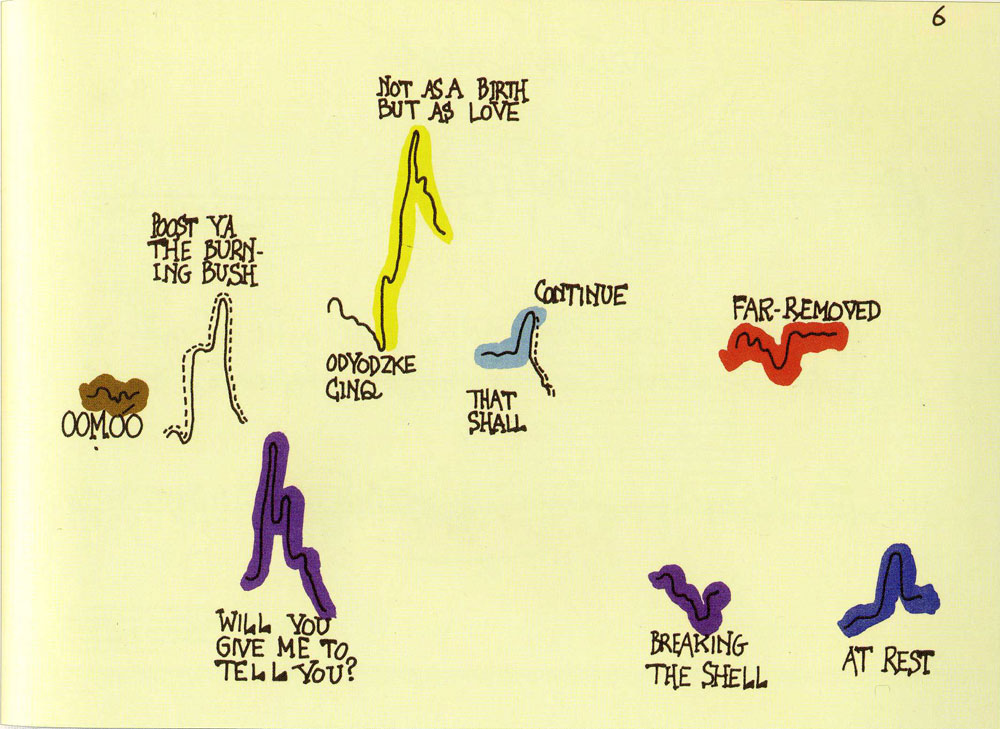 6
NOT AS A BIRTH
BUT AS LOVE
POOST YA
THE BURN-
ING BUSH
CONTINUE
FAR-REMOVED
ODYODZKE
CINQ
THAT
SHALL
OOMOO
WILL YOU
GIVE ME TO
TELL YOU?
BREAKING
THE SHELL
AT REST